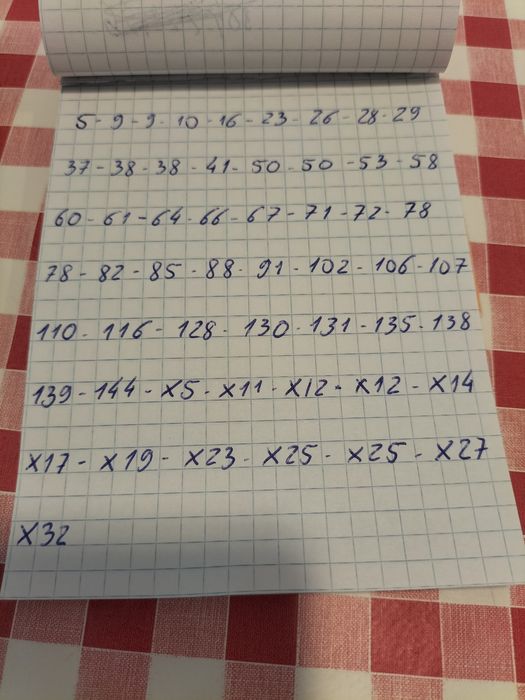 5 - 9 - 9 - 10 - 16 - 23 - 26 - 28 - 29
37 - 38 - 38 - 41 - 50 - 50 - 53 - 58
60 - 61 - 64 - 66 - 67 - 71 - 72 - 78
78 - 82 - 85 - 88 - 91 - 102 - 106 - 107
110 - 116 - 128 - 130 - 131 - 135 - 138
139 - 144 - X5 - X11 - X12 - X12 - X14
X17 - X19 - X23 - X25 - X25 - X27
X32